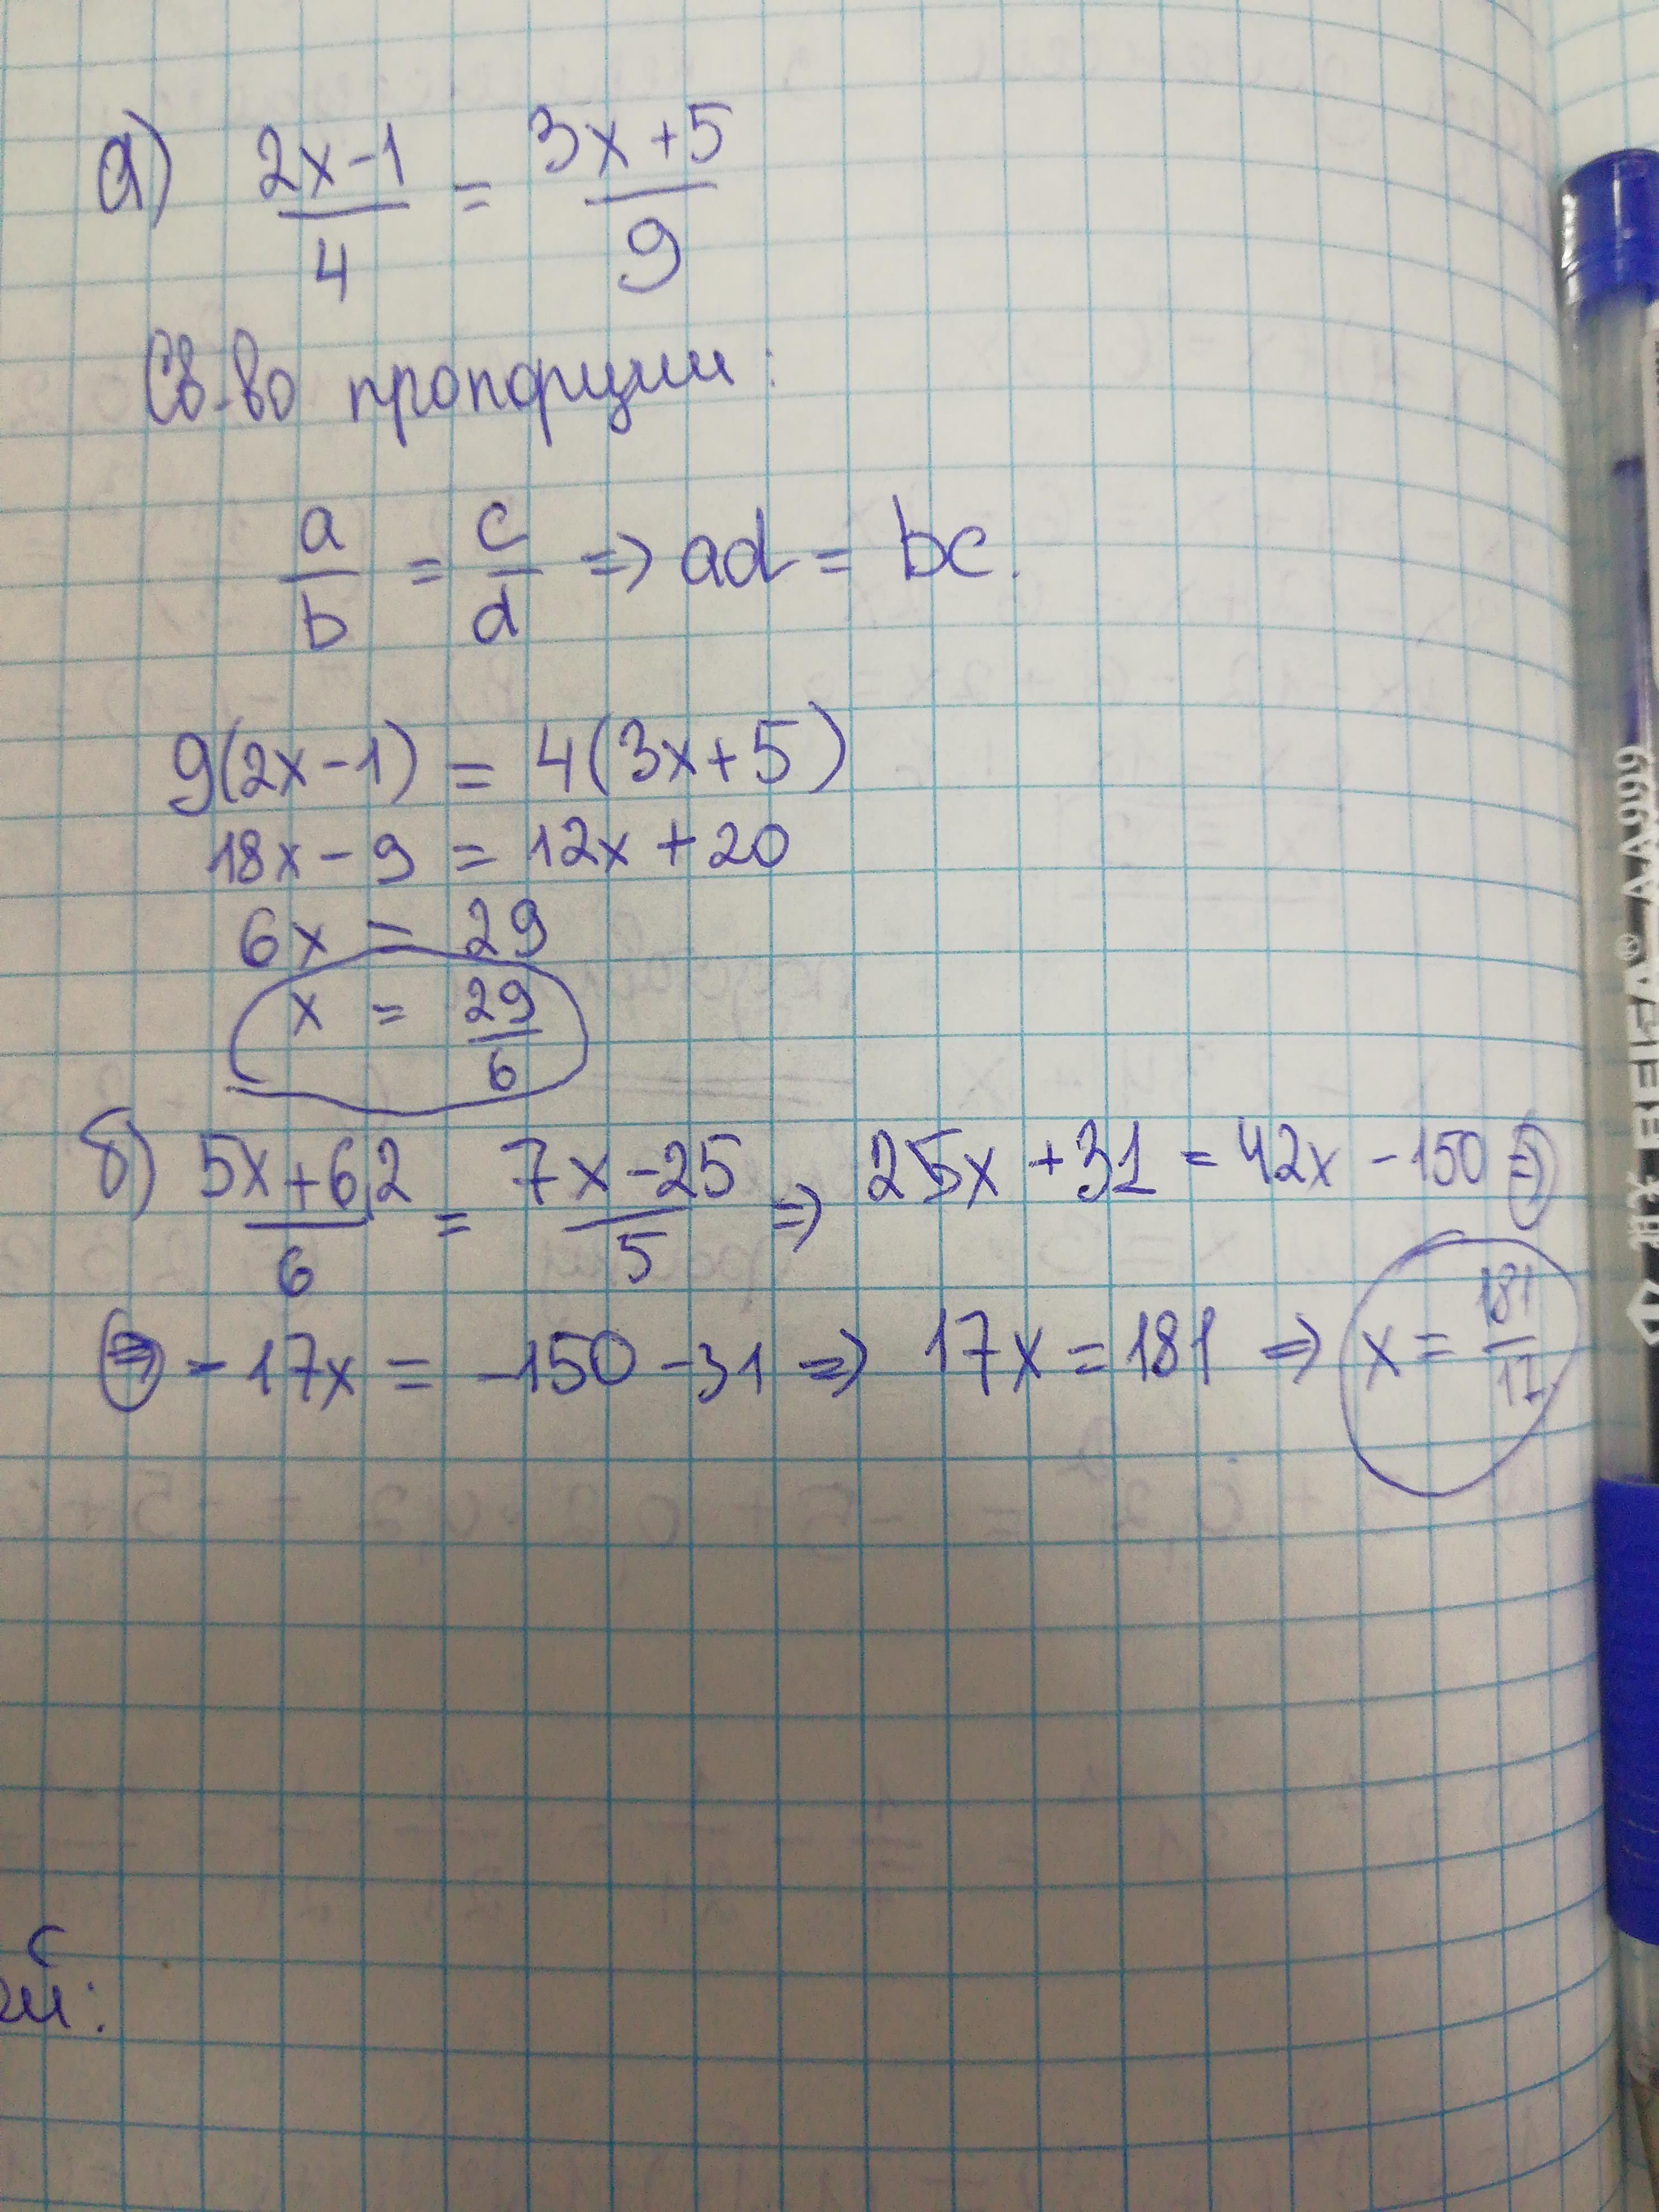 а) 2x-1/4 = 3x+5/9
Св-во пропорции:
a/b = c/d => ad = bc.
9(2x-1) = 4(3x+5)
18x-9 = 12x+20
6x = 29
x = 29/6
б) 5x+6,2/6 = 7x-25/5 => 25x+31 = 42x-150 =>
=> -17x = -150-31 => 17x = 181 => x = 181/17
ей:
BEIFA® AA999